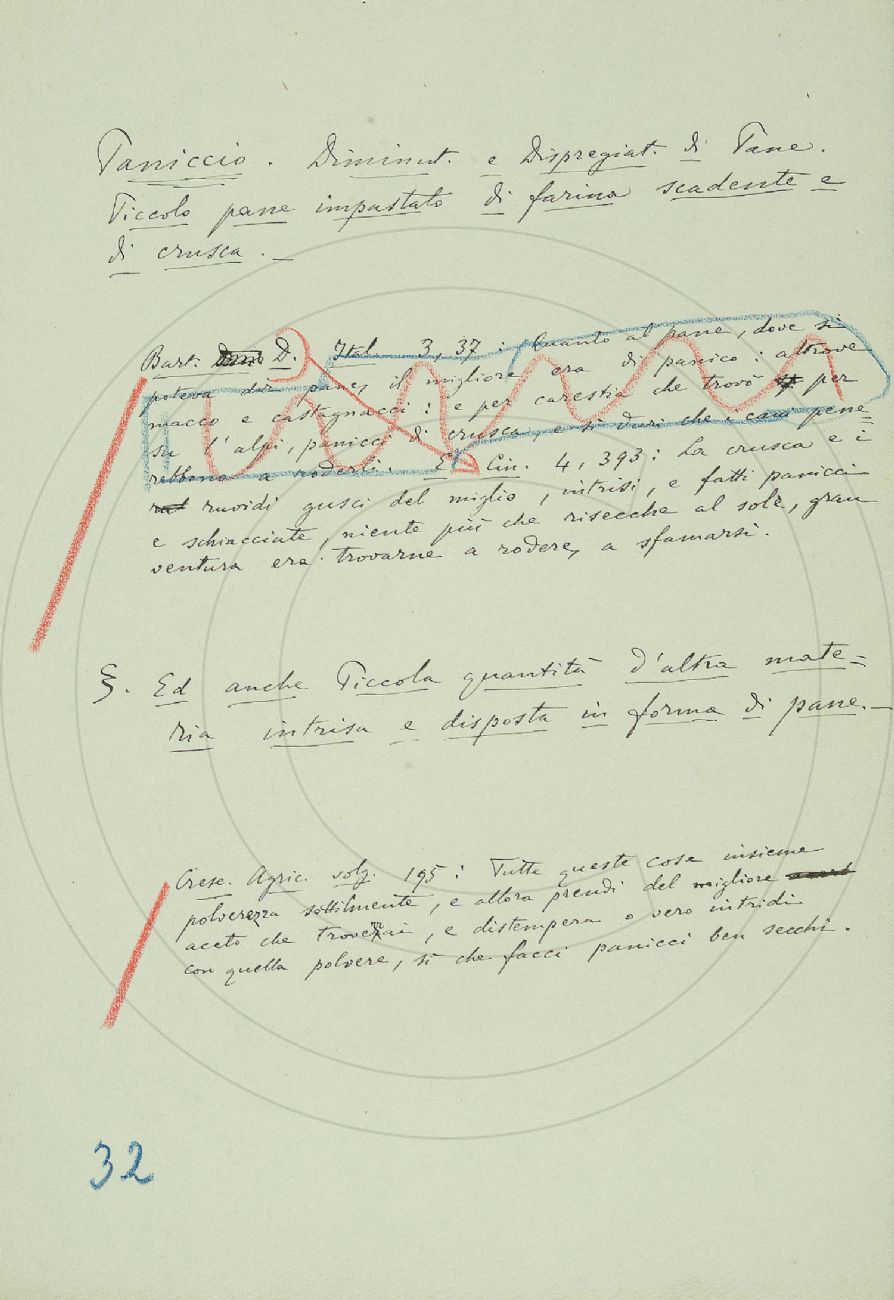 Paniccio. Diminut. e Dispregiat. di Pane.
Piccolo pane impastato di farina scadente e
di crusca. —
Bart. D. Ital. 3, 37: Quanto al pane, dove si
poteva dir pane, il migliore era di panico: altrove
macco e castagnacci: e per carestia che trovò per
su l'alpi, panicci di crusca, e sì duri che i cani pene=
rebbono a roderli. E Cin. 4, 393: La crusca e i
ruvidi gusci del miglio, intrisi, e fatti panicci
e schiacciate, niente più che risecche al sole, gran
ventura era trovarne a rodere, a sfamarsi.
§. Ed anche Piccola quantità d'altra mate=
ria intrisa e disposta in forma di pane. —
Cresc. Agric. volg. 195: Tutte queste cose insieme
polverezza sottilmente, e allora prendi del migliore
aceto che troverai, e distempera o vero intridi
con quella polvere, sì che facci panicci ben secchi.
32